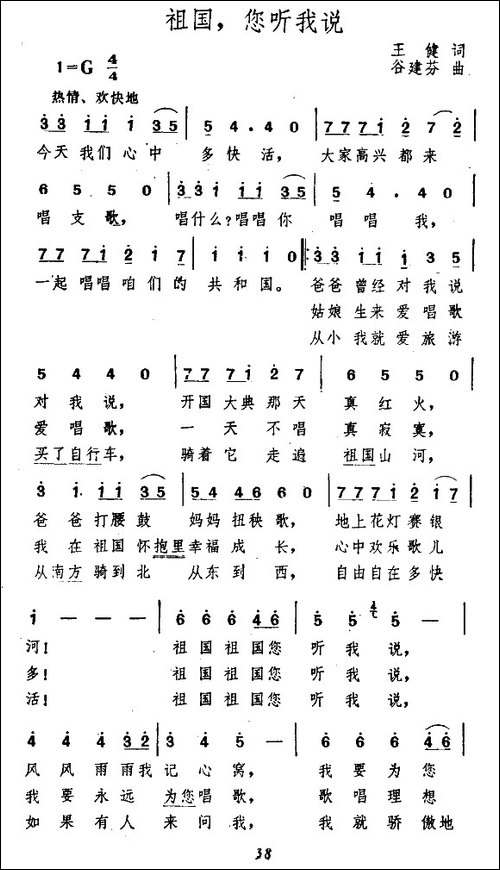 祖国，您听我说
王健 词
1=G 4/4
谷建芬 曲
热情、欢快地
3 3 1 1 1 3 5 | 5 4. 4 0 | 7 7 7 1 2 7 2 |
今天我们心中 多快活， 大家高兴都来
6 5 5 0 | 3 3 1 1 1 3 5 | 5 4. 4 0 |
唱支歌， 唱什么？唱唱你 唱唱我，
7 7 7 1 2 1 7 | 1 1 1 0 ‖: 3 3 1 1 3 5 |
一起唱唱咱们的 共和国。 爸爸曾经对我说
姑娘生来爱唱歌
从小我就爱旅游
5 4 4 0 | 7 7 7 1 2 7 | 6 5 5 0 |
对我说， 开国大典那天 真红火，
爱唱歌， 一天不唱 真寂寞，
买了自行车， 骑着它走遍 祖国山河，
3 1 1 1 3 5 | 5 4 4 6 6 0 | 7 7 7 1 2 1 7 |
爸爸打腰鼓 妈妈扭秧歌， 地上花灯赛银
我在祖国怀抱里幸福成长， 心中欢乐歌儿
从南方骑到北 从东到西， 自由自在多快
1 — — — | 6 6 6 4 6 | 5 5 5 — |
河！ 祖国祖国您 听我说，
多！ 祖国祖国您 听我说，
活！ 祖国祖国您 听我说，
4 4 4 3 2 | 3 4 5 — | 6 6 6 4 6 |
风风雨雨我 记心窝， 我要为您
我要永远 为您唱歌， 歌唱理想
如果有人 来问我， 我就骄傲地
38